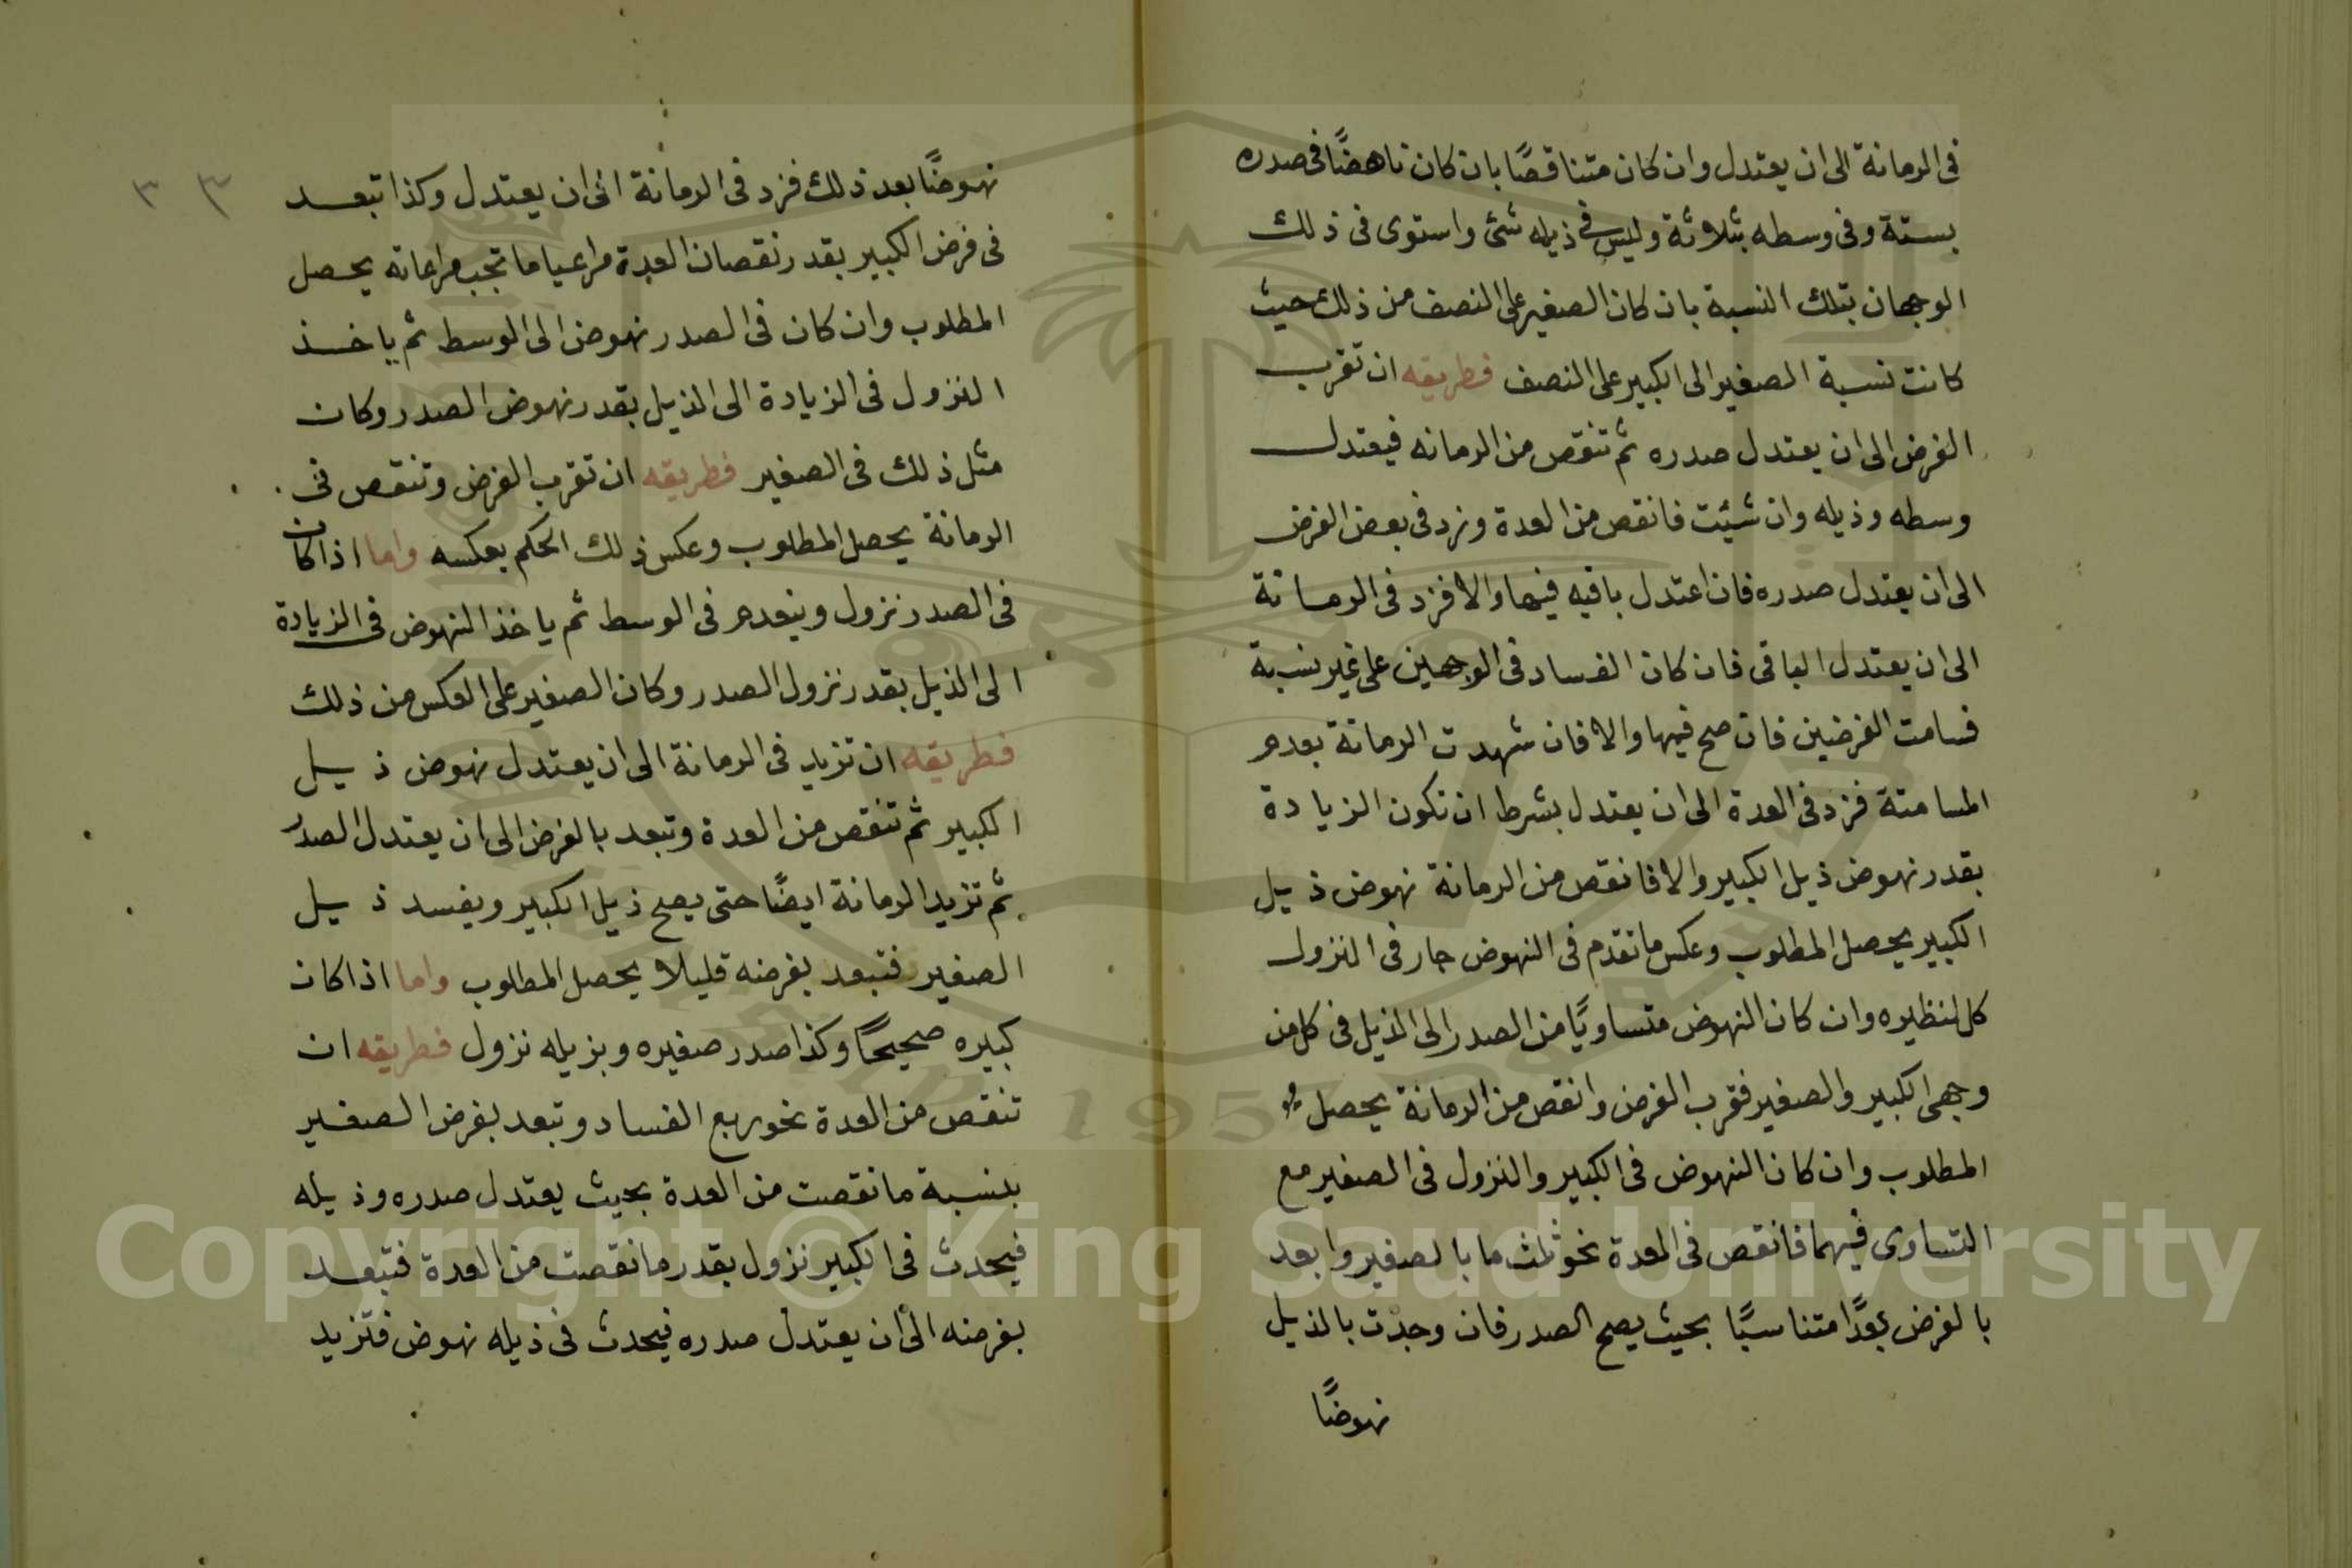 فى الرمانة الى ان يعتدل وان كان متناقصًا بان كان ناهضًا فى صدره
بستة وفى وسطه بثلاثة وليس فى ذيله شئ واستوى فى ذلك
الوجهان بتلك النسبة بان كان الصغير على النصف من ذلك حيث
كانت نسبة الصغير الى الكبير على النصف فطريقه ان تقرب
الفرض الى ان يعتدل صدره ثم تنقص من الرمانه فيعتدل
وسطه وذيله وان شيئت فانقص من العدة وزد فى بعض الفرض
الى ان يعتدل صدره فان اعتدل باقيه فيها والا فزد فى الرمانة
الى ان يعتدل الباقى فان كان الفساد فى الوجهين على غير نسبة
فسامت الفرضين فان صح فيها والا فان شهدت الرمانة بعدم
المسامتة فزد فى العدة الى ان يعتدل بشرط ان تكون الزيادة
بقدر نهوض ذيل الكبير والا فانقص من الرمانة نهوض ذيل
الكبير يحصل المطلوب وعكس ما تقدم فى النهوض جار فى النزول
كل لنظيره وان كان النهوض متساويًا من الصدر الى الذيل فى كل من
وجهى الكبير والصغير فقرب الفرض وانقص من الرمانة يحصل
المطلوب وان كان النهوض فى الكبير والنزول فى الصغير مع
التساوى فيهما فانقص فى العدة نحو ثلث ما بالصغير وابعد
بالفرض بعدًا متناسبًا بحيث يصح الصدر فان وجدت بالذيل
نهوضًا
٣ ٣
نهوضًا بعد ذلك فزد فى الرمانة الى ان يعتدل وكذا تبعد
فى فرض الكبير بقدر نقصان العدة مراعيا ما تجب مراعاته يحصل
المطلوب وان كان فى الصدر نهوض الى الوسط ثم ياخذ
النزول فى الزيادة الى الذيل بقدر نهوض الصدر وكان
مثل ذلك فى الصغير فطريقه ان تقرب الفرض وتنقص فى
الرمانة يحصل المطلوب وعكس ذلك الحكم بعكسه واما اذا كان
فى الصدر نزول وينعدم فى الوسط ثم ياخذ النهوض فى الزيادة
الى الذيل بقدر نزول الصدر وكان الصغير على العكس من ذلك
فطريقه ان تزيد فى الرمانة الى ان يعتدل نهوض ذيل
الكبير ثم تنقص من العدة وتبعد بالفرض الى ان يعتدل الصدر
ثم تزيد الرمانة ايضًا حتى يصح ذيل الكبير ويفسد ذيل
الصغير فتبعد بفرضه قليلا يحصل المطلوب واما اذا كان
كبيره صحيحًا وكذا صدر صغيره وبزيله نزول فطريقه ان
تنقص من العدة نحو ربع الفساد وتبعد بفرض الصغير
بنسبة ما نقصت من العدة بحيث يعتدل صدره وذيله
فيحدث فى الكبير نزول بقدر ما نقصت من العدة فتبعد
بفرضه الى ان يعتدل صدره فيحدث فى ذيله نهوض فتزيد
Copyright © King Saud University